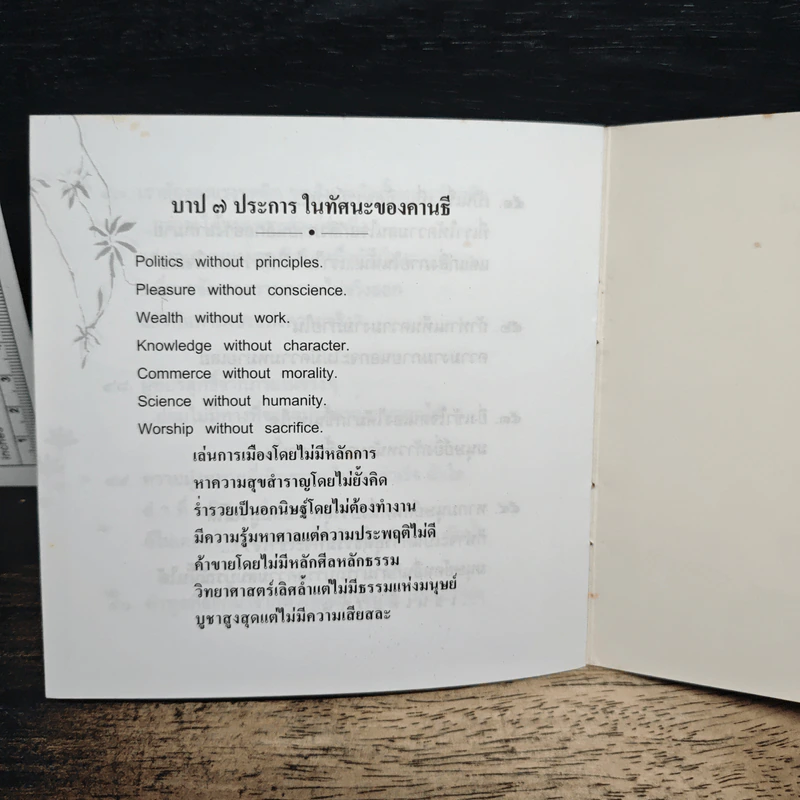 บาป ๗ ประการ ในทัศนะของคานธี
Politics without principles.
Pleasure without conscience.
Wealth without work.
Knowledge without character.
Commerce without morality.
Science without humanity.
Worship without sacrifice.
เล่นการเมืองโดยไม่มีหลักการ
หาความสุขสำราญโดยไม่ยั้งคิด
ร่ำรวยเป็นอกนิษฐ์โดยไม่ต้องทำงาน
มีความรู้มหาศาลแต่ความประพฤติไม่ดี
ค้าขายโดยไม่มีหลักศีลหลักธรรม
วิทยาศาสตร์เลิศล้ำแต่ไม่มีธรรมแห่งมนุษย์
บูชาสูงสุดแต่ไม่มีความเสียสละ
inches
1
2
3